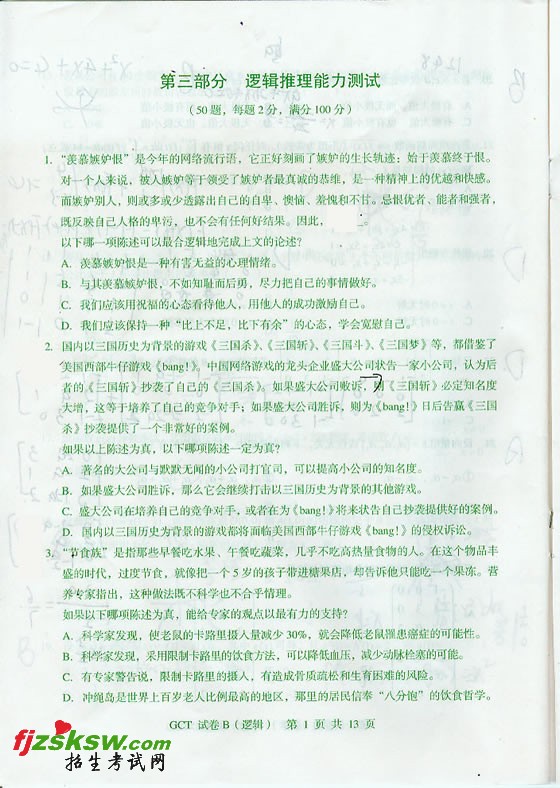 第三部分 逻辑推理能力测试
（50题，每题2分，满分100分）
1. “羡慕嫉妒恨”是今年的网络流行语，它正好刻画了嫉妒的生长轨迹：始于羡慕终于恨。
对一个人来说，被人嫉妒等于领受了嫉妒者最真诚的恭维，是一种精神上的优越和快感。
而嫉妒别人，则或多或少透露出自己的自卑、懊恼、羞愧和不甘。忌恨优者、能者和强者，
既反映自己人格的卑污，也不会有任何好结果。因此，
。
以下哪一项陈述可以最合逻辑地完成上文的论述？
A. 羡慕嫉妒恨是一种有害无益的心理情绪。
B. 与其羡慕嫉妒恨，不如知耻而后勇，尽力把自己的事情做好。
C. 我们应该用祝福的心态看待他人，用他人的成功激励自己。
D. 我们应该保持一种“比上不足，比下有余”的心态，学会宽慰自己。
2. 国内以三国历史为背景的游戏《三国杀》、《三国斩》、《三国斗》、《三国梦》等，都借鉴了
美国西部牛仔游戏《bang!》。中国网络游戏的龙头企业盛大公司状告一家小公司，认为后
者的《三国斩》抄袭了自己的《三国杀》。如果盛大公司败诉，则《三国斩》必定知名度
大增，这等于培养了自己的竞争对手；如果盛大公司胜诉，则为《bang!》日后告赢《三国
杀》抄袭提供了一个非常好的案例。
如果以上陈述为真，以下哪项陈述一定为真？
A. 著名的大公司与默默无闻的小公司打官司，可以提高小公司的知名度。
B. 如果盛大公司胜诉，那么它会继续打击以三国历史为背景的其他游戏。
C. 盛大公司在培养自己的竞争对手，或者在为《bang!》将来状告自己抄袭提供好的案例。
D. 国内以三国历史为背景的游戏都将面临美国西部牛仔游戏《bang!》的侵权诉讼。
3. “节食族”是指那些早餐吃水果、午餐吃蔬菜，几乎不吃高热量食物的人。在这个物品丰
盛的时代，过度节食，就像把一个5岁的孩子带进糖果店，却告诉他只能吃一个果冻。营
养专家指出，这种做法既不科学也不合乎情理。
如果以下哪项陈述为真，能给专家的观点以最有力的支持？
A. 科学家发现，使老鼠的卡路里摄入量减少30%，就会降低老鼠罹患癌症的可能性。
B. 科学家发现，采用限制卡路里的饮食方法，可以降低血压，减少动脉栓塞的可能。
C. 有专家警告说，限制卡路里的摄入，有造成骨质疏松和生育困难的风险。
D. 冲绳岛是世界上百岁老人比例最高的地区，那里的居民信奉“八分饱”的饮食哲学。
GCT 试卷B（逻辑） 第 1 页 共 13 页
fjzsksw.com
招生考试网